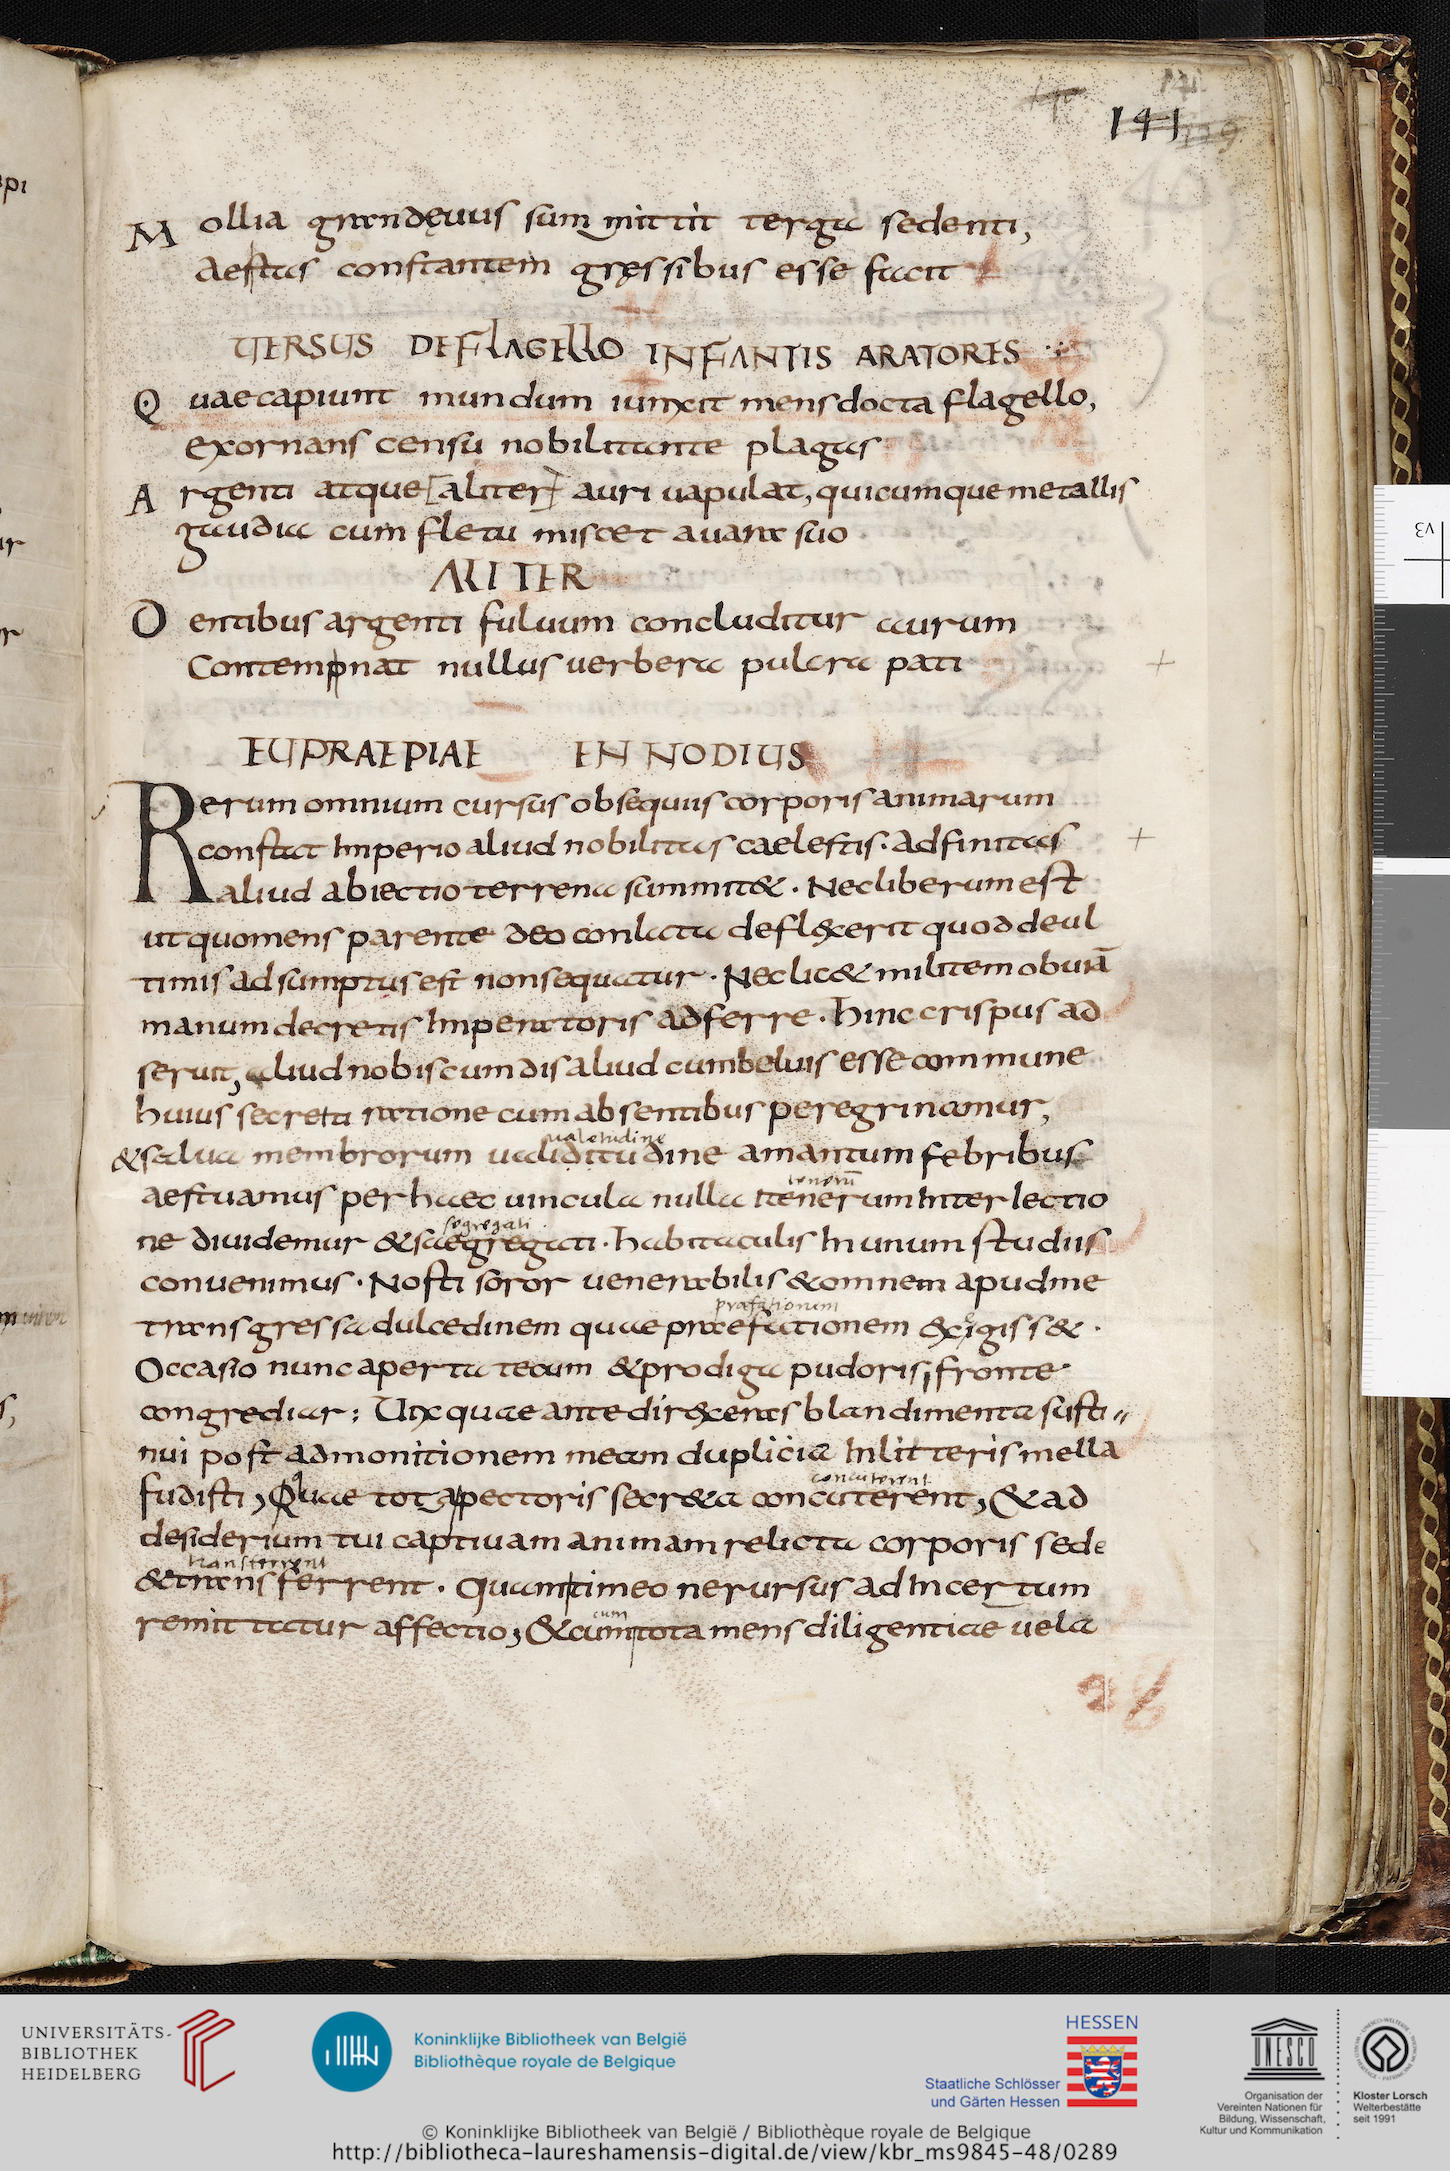 141
Mollia grandęuus summittit terga sedenti,
Aestas constantem gręssibus esse facit
UERSUS DE FLAGELLO INFANTIS ARATORES
Quae capiunt mundum iunxit mens docta flagello,
exornans censu nobilitante plagas
Argenti atque [aliter] auri uapulat, quicumque metallis
gaudia cum fletu miscet auara suo
ALITER
Dentibus argenti fuluum concluditur aurum
Contempnat nullus uerbera pulcra pati
EUPRAEPIAE ENNODIUS
Rerum omnium cursus obsequiis corporis animarum
constat Imperio aliud nobilitas caelestis. Adfinitas
aliud abiectio terrena summit&. Nec liberum est
ut quo mens parente deo conlata deflexerit quod de ul
timis adsumptus est non sequatur. Nec lic& militem obuiā
manum decretis Imperatoris adferre. hinc crispus ad
seruit, aliud nobis cum dis aliud cum beluis esse commune
huius secreti ratione cum absentibus peregrinamur,
ualetudine
& salua membrorum ualiditudine amantum febribus
tenerū
aestuamus per haec uincula nulla itenerum Interlectio
segregati
ne diuidemur & saegregati. habitaculis In unum studiis
conuenimus. Nosti soror uenerabilis & omnem apud me
praefationem
transgressa dulcedinem quae praefationem exigiss&.
Occasio nunc aperta tecum & prodiga pudoris, fronte
congrediar; Unx quae ante direxeras blandimenta susti
nui post admonitionem meam duplicia In litteris mella
concuterent
fudisti, Quae tot pectoris secr&a concuterent, & ad
desiderium tui captiuam animam relicta corporis sede
transferrent
& transferrent. Quam timeo ne rursus ad Incertum
cum
remittatur affectio, & cum tota mens diligentiae uela
UNIVERSITÄTS-
BIBLIOTHEK
HEIDELBERG
Koninklijke Bibliotheek van België
Bibliothèque royale de Belgique
HESSEN
Staatliche Schlösser
und Gärten Hessen
UNESCO
Organisation der
Vereinten Nationen für
Bildung, Wissenschaft,
Kultur und Kommunikation
Kloster Lorsch
Welterbestätte
seit 1991
© Koninklijke Bibliotheek van België / Bibliothèque royale de Belgique
http://bibliotheca-laureshamensis-digital.de/view/kbr_ms9845-48/0289